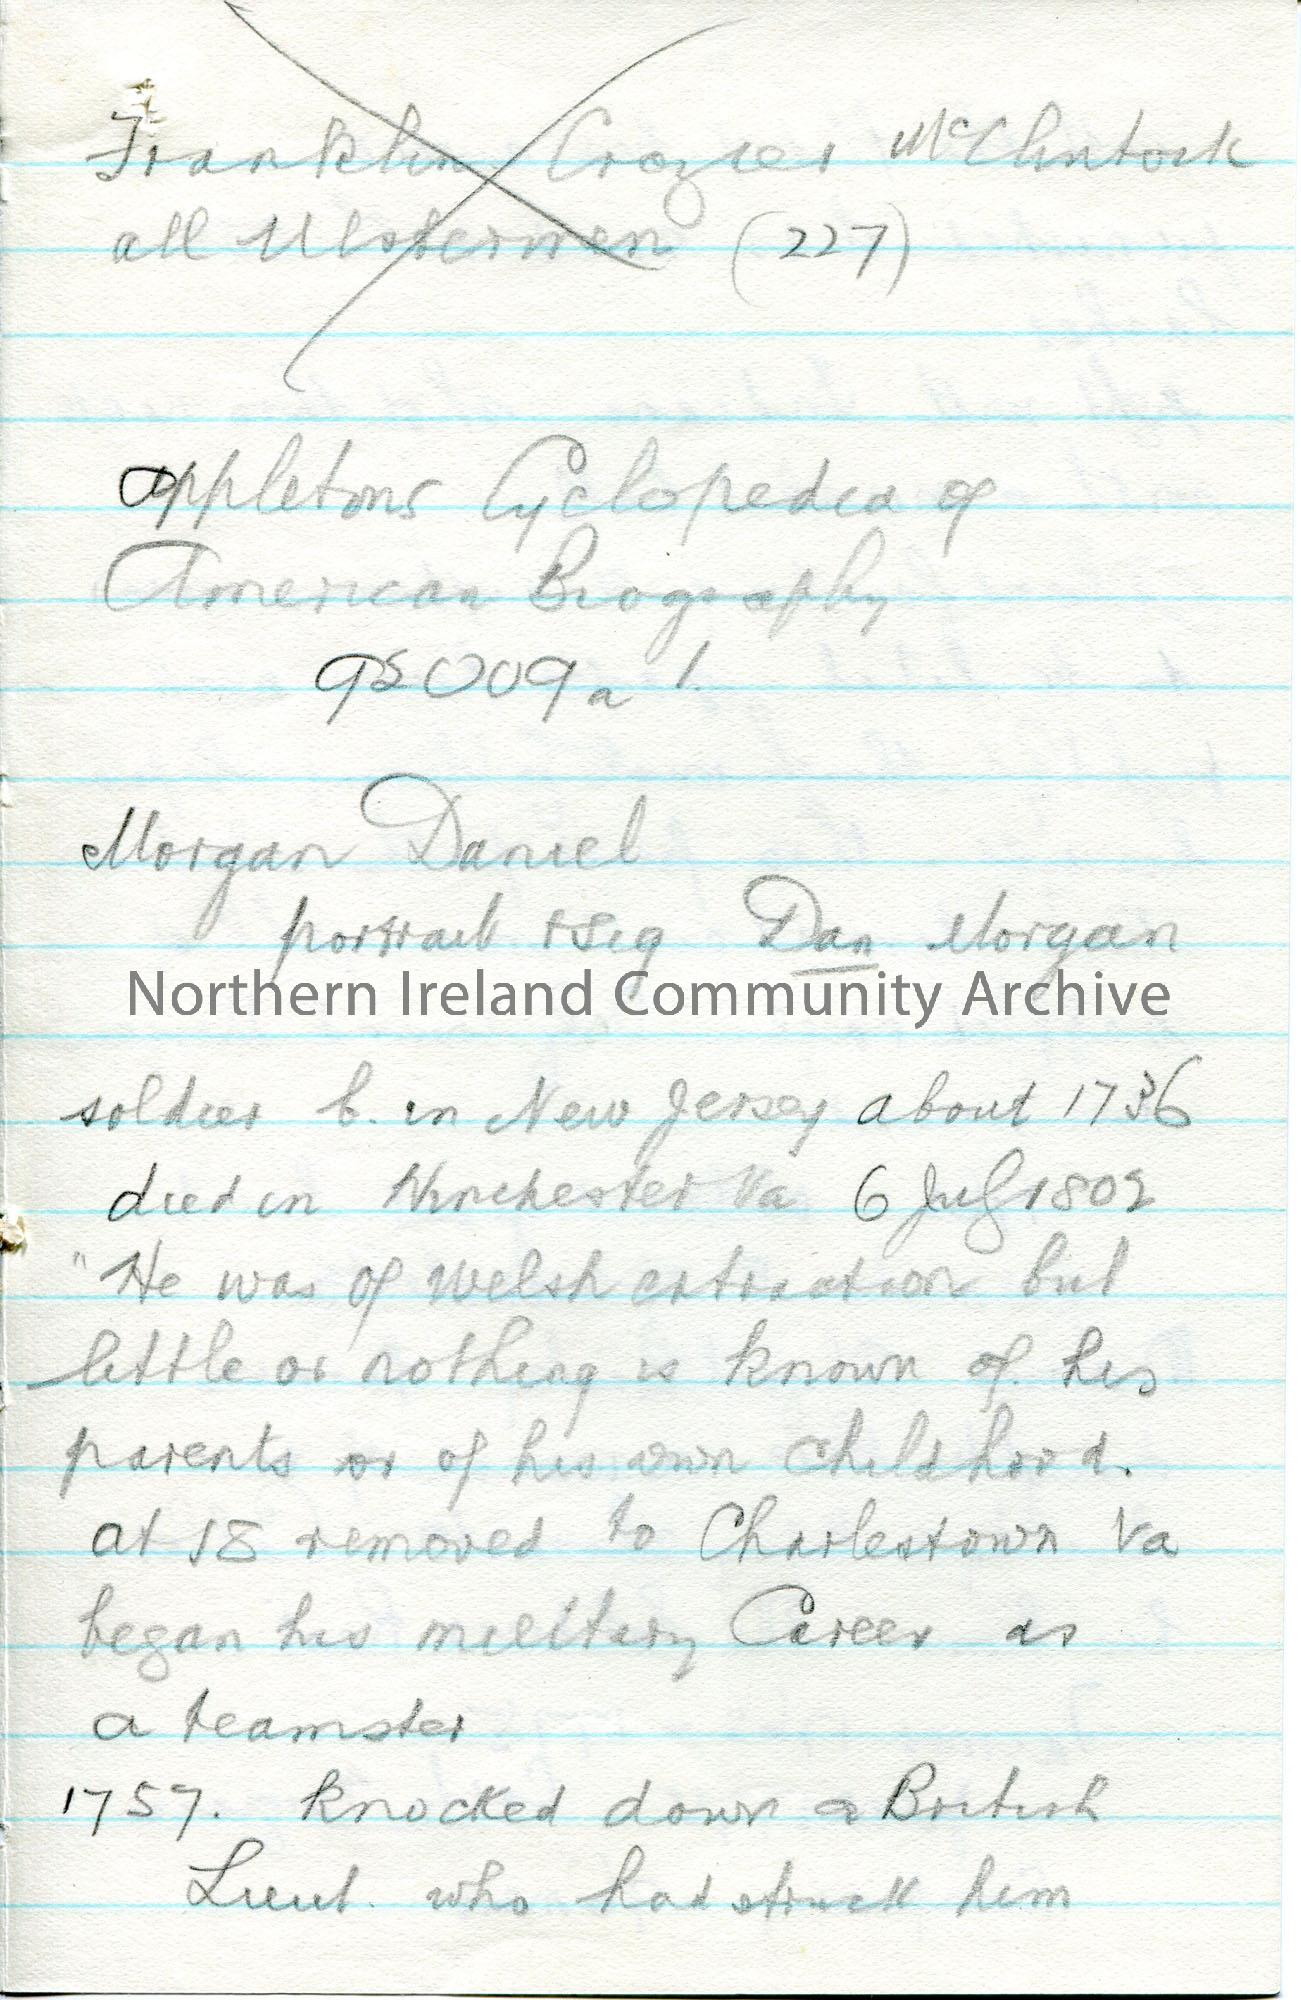 Franklin Crozier McClintock
all Ulstermen (227)
Appletons Cyclopedia of
American Biography
9S009a 1.
Morgan Daniel
portrait & sig Dan Morgan
Northern Ireland Community Archive
soldier b. in New Jersey about 1736
died in Winchester Va 6 July 1802
"He was of Welsh extraction but
little or nothing is known of his
parents or of his own childhood.
at 18 removed to Charlestown Va
began his military Career as
a teamster
1757. knocked down a British
Lieut. who had struck him